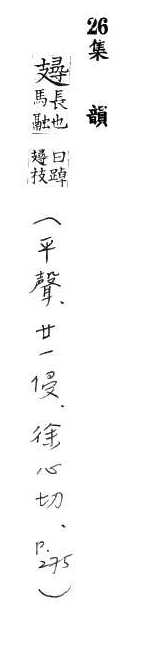 26 集韻
長也馬融曰踔技
（平聲、廿一侵．徐心切、P.275）